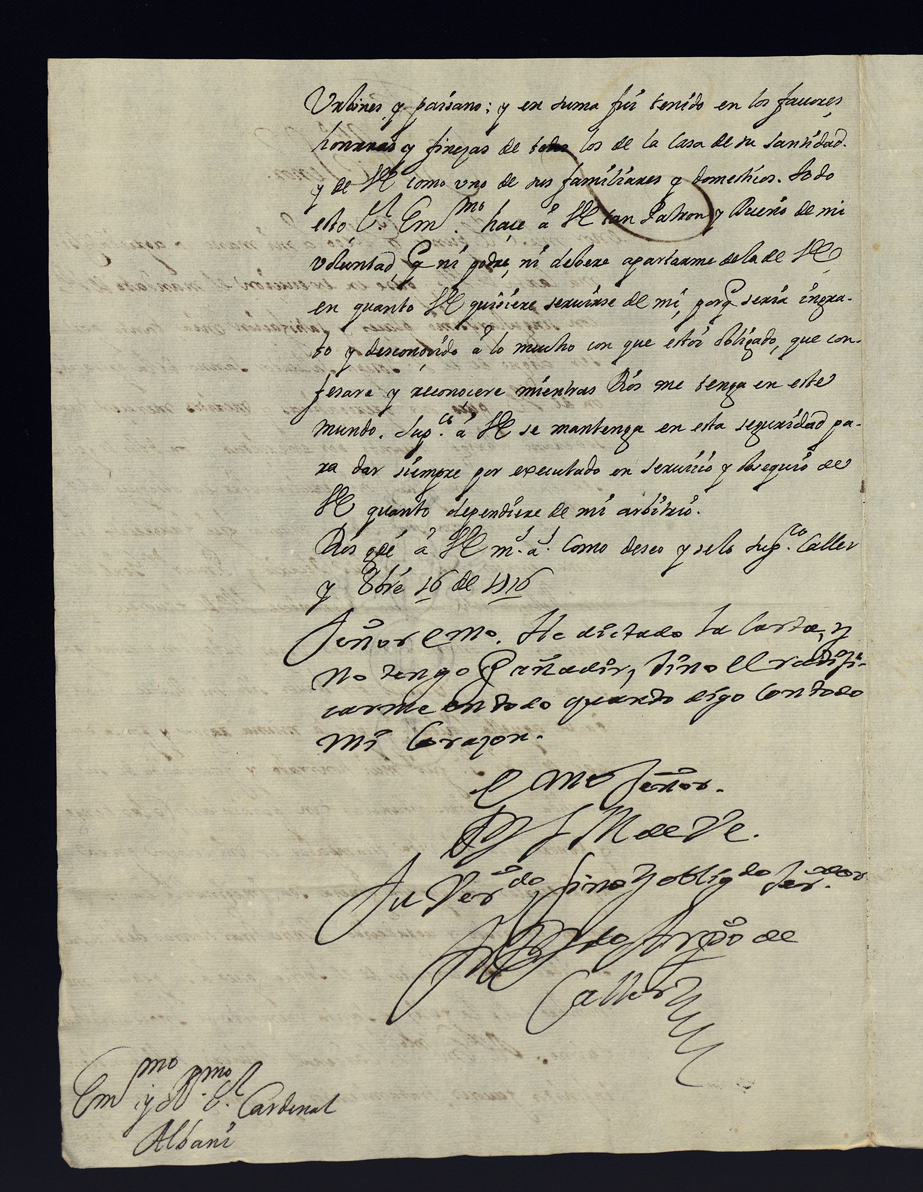 Urbines, y paisano; y en suma fui tenido en los favores,
honrras y finezas de todos los de la Casa de su Santidad
y de VE como uno de sus familiares y domesticos. Todo
esto Em.mo haze â VE tan Patron y Dueño de mi
voluntad, q ni podre, ni debere apartarme de la de VE,
en quanto VE quisiere servirse de mi, porq̃ seria ingra-
to y desconocido â lo mucho con que estoi obligado, que con-
fesare y reconocere mientras Dios me tenga en este
mundo. Sup.co â VE se mantenga en esta seguridad pa-
ra dar siempre por executado en servicio y obsequio de
VE quanto dependiere de mi arbitrio.
Dios gde â VE m.s a.s como deseo y se lo sup.co Caller
y 16 de 1716
Señor Emo. He dictado la Carta, y
no tengo q̃ añadir, sino el ratifi-
carme en todo quando digo con todo
mi Corazon.
Emo Señor.
B L M de VE.
Su Ver.do, fino y oblig.do Ser.dor
Arzpo de
Caller
Em.mo y R.mo S.r Cardenal
Albani